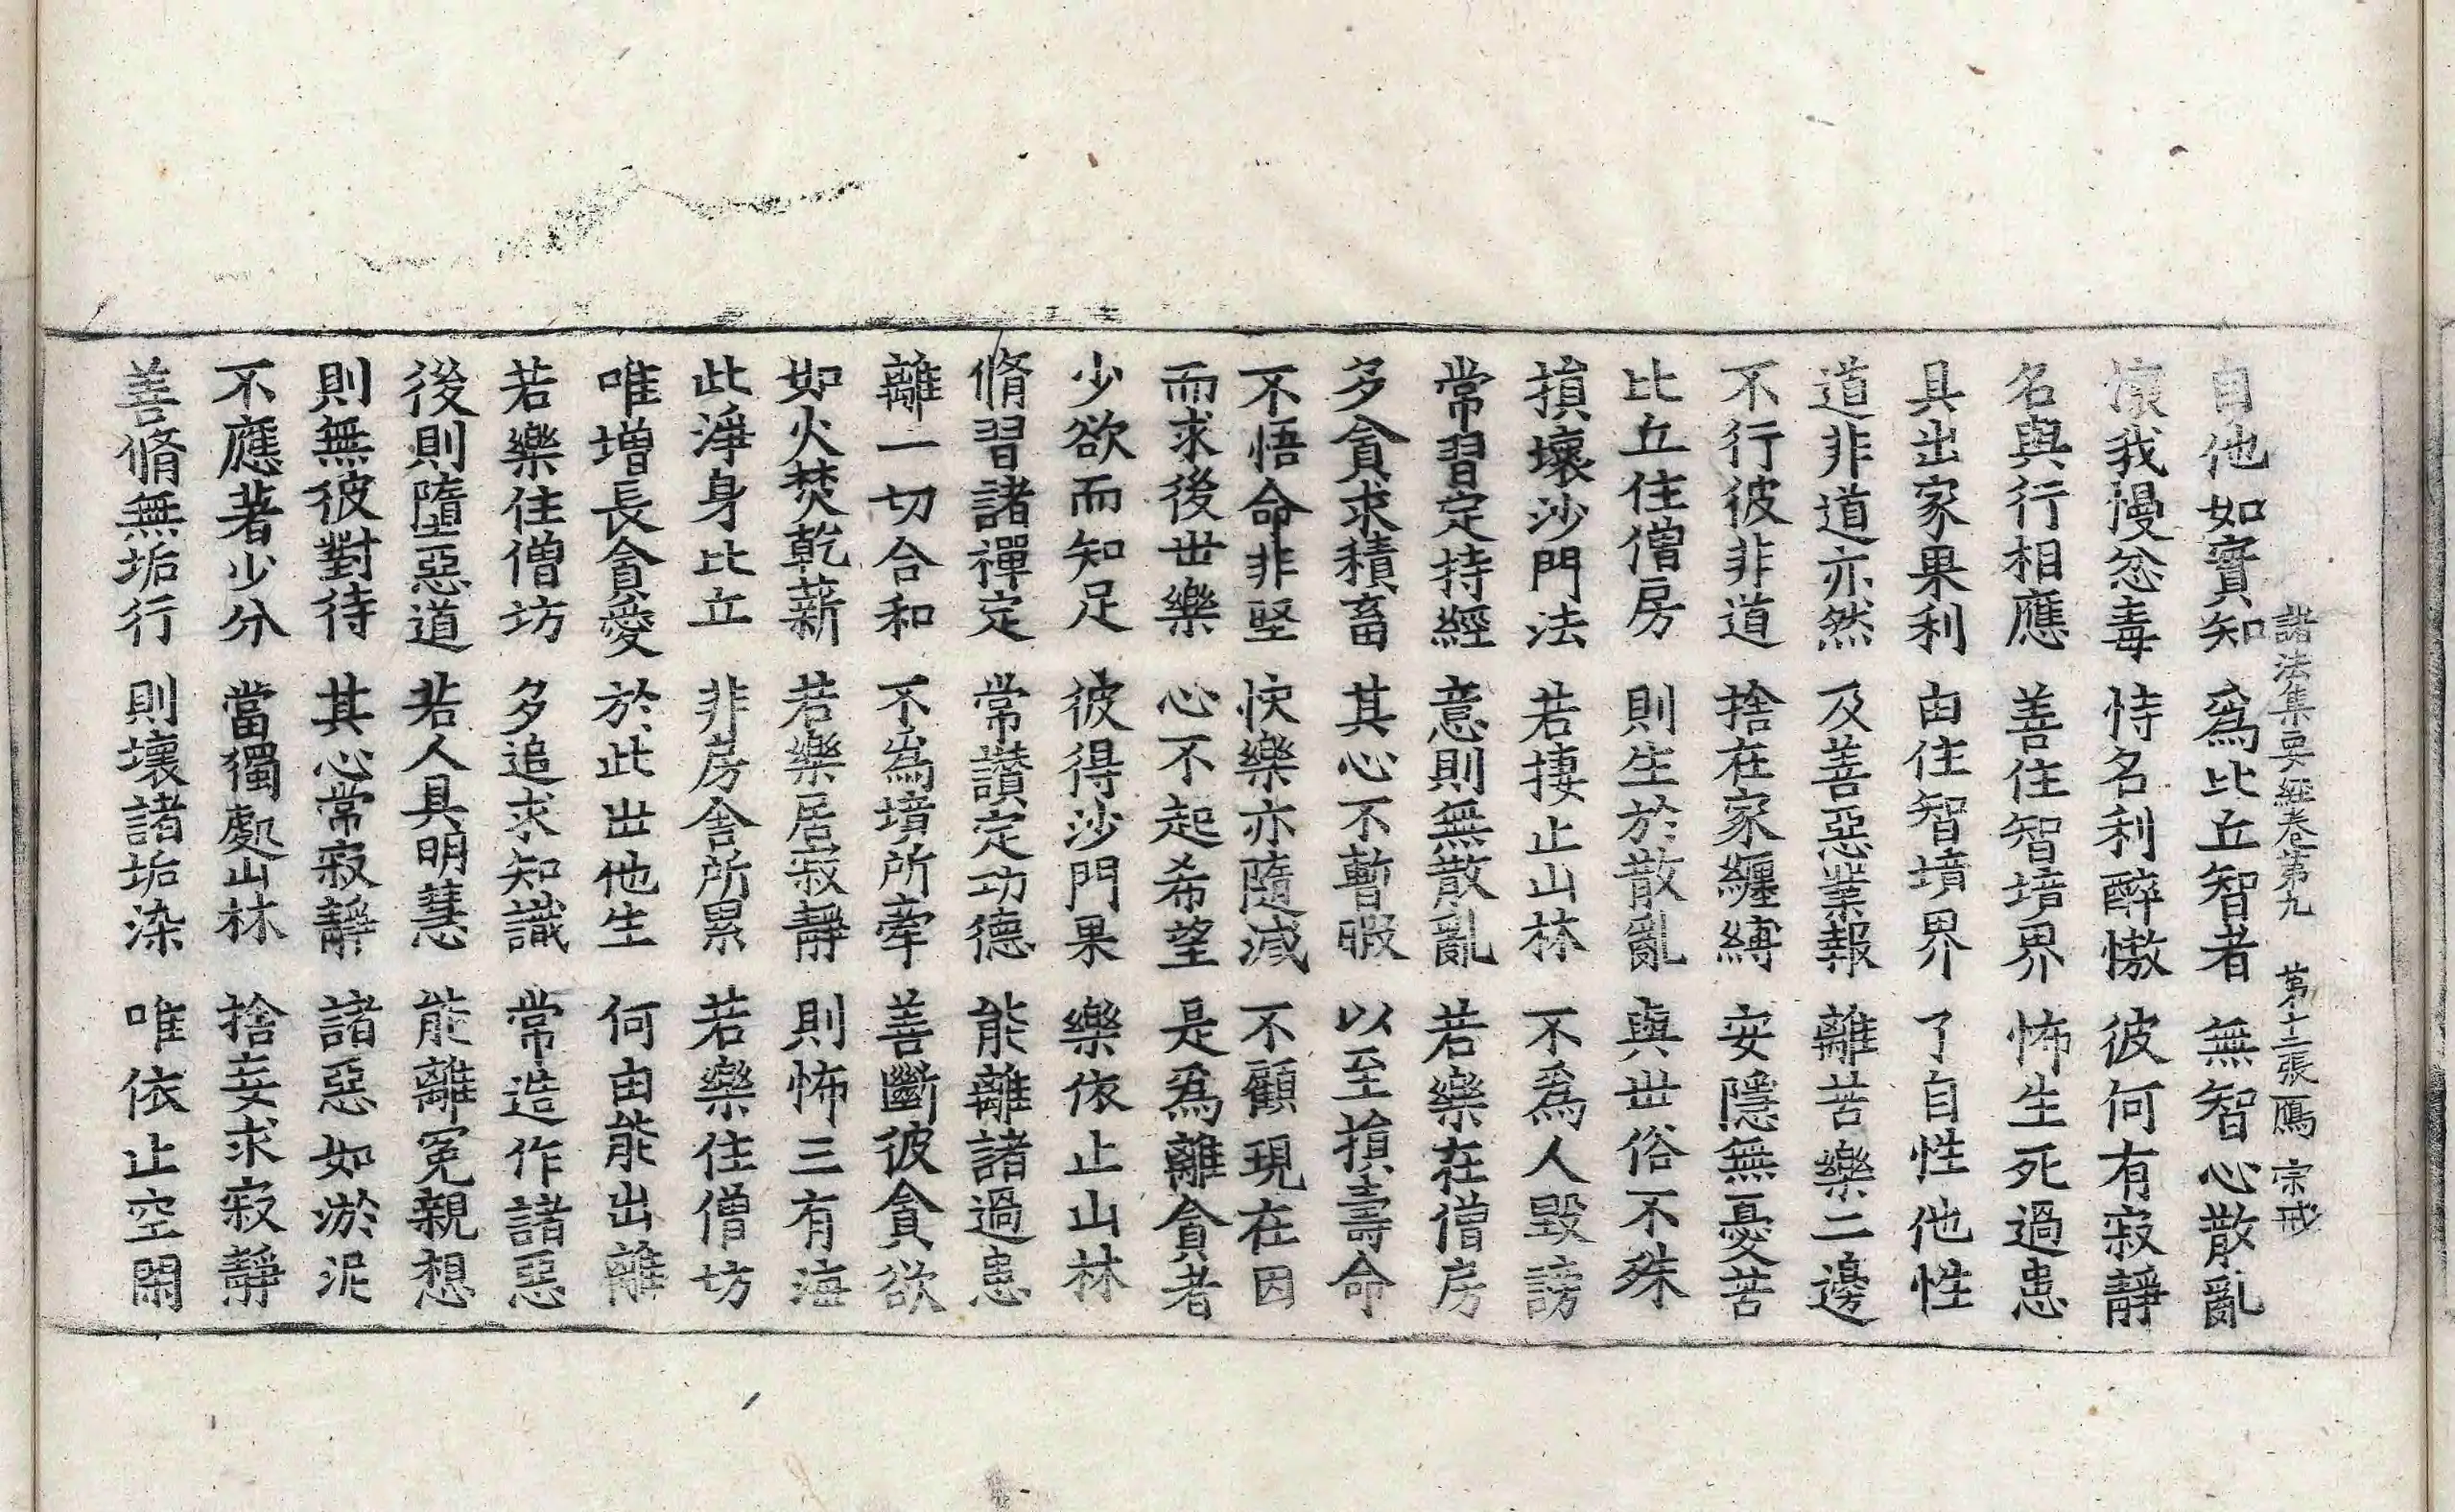 諸法集要經卷第九　第十二張　鴈　宗戒
自他如實知　爲比丘智者　無智心散亂
懷我慢忿毒　恃名利醉慠　彼何有寂靜
名與行相應　善住智境界　怖生死過患
具出家果利　由住智境界　了自性他性
道非道亦然　及善惡業報　離苦樂二邊
不行彼非道　捨在家纏縛　安隱無憂苦
比丘住僧房　則生於散亂　與世俗不殊
損壞沙門法　若捿止山林　不爲人毀謗
常習定持經　意則無散亂　若樂在僧房
多貪求積畜　其心不暫暇　以至損壽命
不悟命非堅　快樂亦隨減　不顧現在因
而求後世樂　心不起希望　是爲離貪者
少欲而知足　彼得沙門果　樂依止山林
脩習諸禪定　常讃定功德　能離諸過患
離一切合和　不爲境所牽　善斷彼貪欲
如火焚乾薪　若樂居寂靜　則怖三有海
此淨身比丘　非房舍所累　若樂住僧坊
唯增長貪愛　於此世他生　何由能出離
若樂住僧坊　多追求知識　常造作諸惡
後則墮惡道　若人具明慧　能離冤親想
則無彼對待　其心常寂靜　諸惡如淤泥
不應著少分　當獨處山林　捨妄求寂靜
善脩無垢行　則壞諸垢染　唯依止空閑